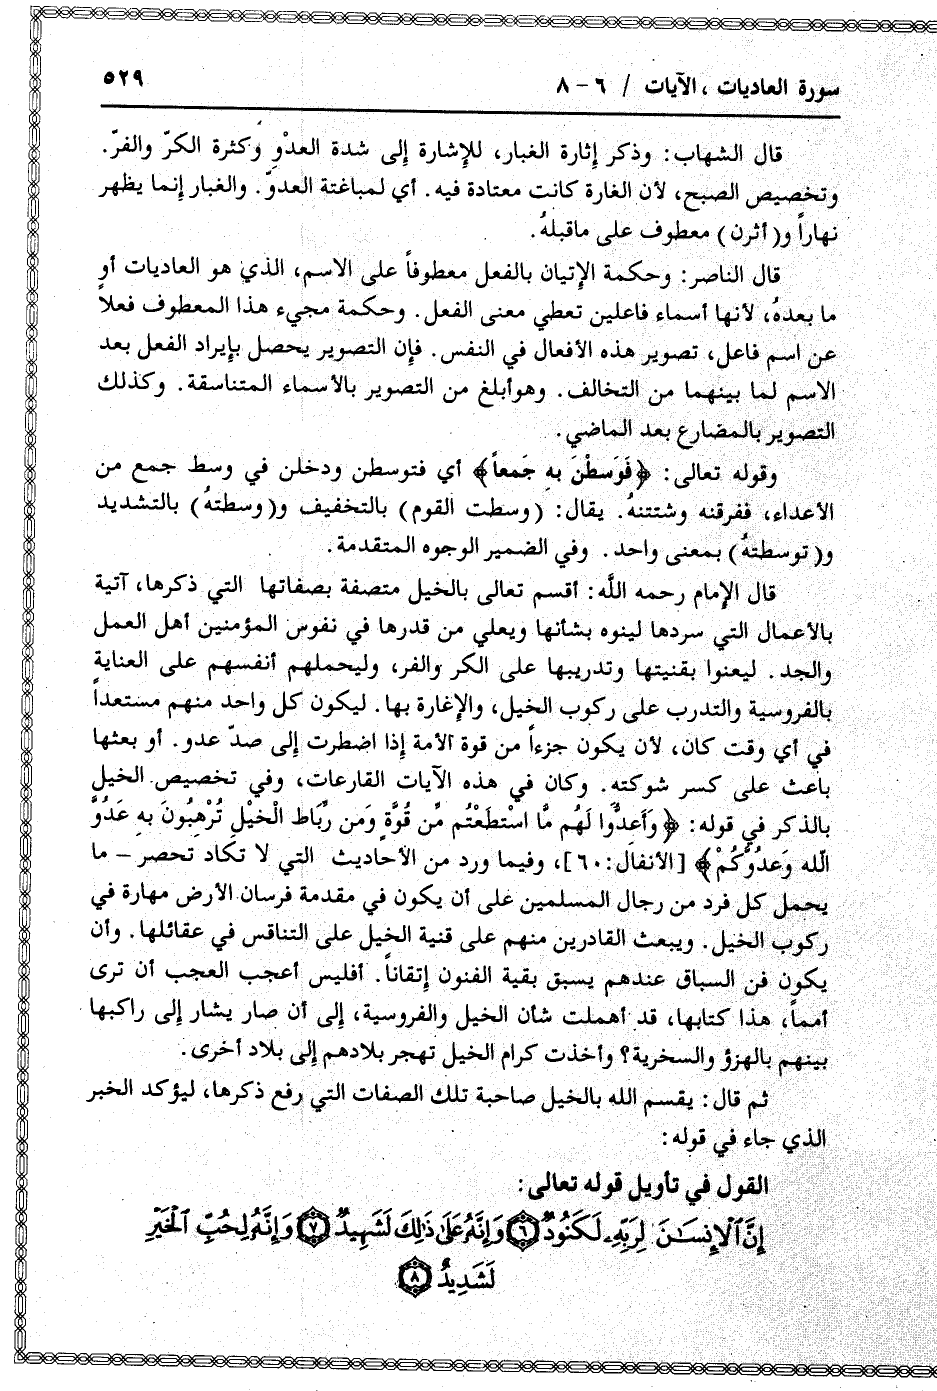 سورة العاديات ، الآيات / ٦ - ٨
٥٢٩
قال الشهاب: وذكر إثارة الغبار، للإشارة إلى شدة العدْوِ وكثرة الكرّ والفرّ.
وتخصيص الصبح، لأن الغارة كانت معتادة فيه. أي لمباغتة العدوّ. والغبار إنما يظهر
نهاراً و(أثرن) معطوف على ماقبلهُ.
قال الناصر: وحكمة الإتيان بالفعل معطوفاً على الاسم، الذي هو العاديات أو
ما بعدهُ، لأنها أسماء فاعلين تعطي معنى الفعل. وحكمة مجيء هذا المعطوف فعلاً
عن اسم فاعل، تصوير هذه الأفعال في النفس. فإن التصوير يحصل بإيراد الفعل بعد
الاسم لما بينهما من التخالف. وهوأبلغ من التصوير بالأسماء المتناسقة. وكذلك
التصوير بالمضارع بعد الماضي.
وقوله تعالى: ﴿فَوَسطْنَ بِهِ جَمعاً﴾ أي فتوسطن ودخلن في وسط جمع من
الأعداء، ففرقنه وشتتنهُ. يقال: (وسطت القوم) بالتخفيف و(وسطتهُ) بالتشديد
و(توسطتهُ) بمعنى واحد. وفي الضمير الوجوه المتقدمة.
قال الإمام رحمه اللَّه: أقسم تعالى بالخيل متصفة بصفاتها التي ذكرها، آتية
بالأعمال التي سردها لينوه بشأنها ويعلي من قدرها في نفوس المؤمنين أهل العمل
والجد. ليعنوا بقنيتها وتدريبها على الكر والفر، وليحملهم أنفسهم على العناية
بالفروسية والتدرب على ركوب الخيل، والإغارة بها. ليكون كل واحد منهم مستعداً
في أي وقت كان، لأن يكون جزءاً من قوة الأمة إذا اضطرت إلى صدّ عدو. أو بعثها
باعث على كسر شوكته. وكان في هذه الآيات القارعات، وفي تخصيص الخيل
بالذكر في قوله: ﴿وَأَعدُّوا لَهُم مَّا اسْتطَعْتُم مِّن قُوَّةٍ وَمن رِّبَاط الْخيْلِ تُرْهبُونَ به عَدُوَّ
اللّه وَعدُوَّكُمْ﴾ [الأنفال:٦٠]، وفيما ورد من الأحاديث التي لا تكاد تحصر – ما
يحمل كل فرد من رجال المسلمين على أن يكون في مقدمة فرسان الأرض مهارة في
ركوب الخيل. ويبعث القادرين منهم على قنية الخيل على التنافس في عقائلها. وأن
يكون فن السباق عندهم يسبق بقية الفنون إتقاناً. أفليس أعجب العجب أن ترى
أمماً، هذا كتابها، قد أهملت شأن الخيل والفروسية، إلى أن صار يشار إلى راكبها
بينهم بالهزؤ والسخرية؟ وأخذت كرام الخيل تهجر بلادهم إلى بلاد أخرى.
ثم قال: يقسم الله بالخيل صاحبة تلك الصفات التي رفع ذكرها، ليؤكد الخبر
الذي جاء في قوله:
القول في تأويل قوله تعالى:
إِنَّ ٱلْإِنسَٰنَ لِرَبِّهِۦ لَكَنُودٌ ٦ وَإِنَّهُۥ عَلَىٰ ذَٰلِكَ لَشَهِيدٌ ٧ وَإِنَّهُۥ لِحُبِّ ٱلْخَيْرِ
لَشَدِيدٌ ٨